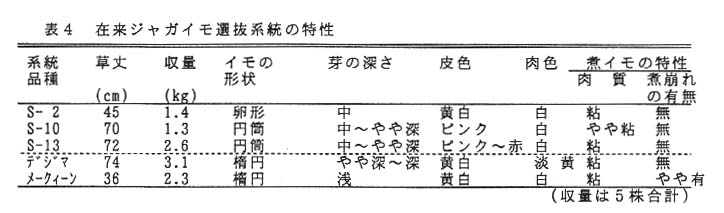 表4 在来ジャガイモ選抜系統の特性
系統 草丈 収量 イモの 芽の深さ 皮色 肉色 煮イモの特性
品種 形状 肉質 煮崩れ
(cm) (kg) の有無
S-2 45 1.4 卵形 中 黄白 白 粘 無
S-10 70 1.3 円筒 中～やや深 ピンク 白 やや粘 無
S-13 72 2.6 円筒 中～やや深 ピンク～赤 白 粘 無
デジマ 74 3.1 楕円 やや深～深 黄白 淡黄 粘 無
メークィーン 36 2.3 楕円 浅 黄白 白 粘 やや有
(収量は5株合計)